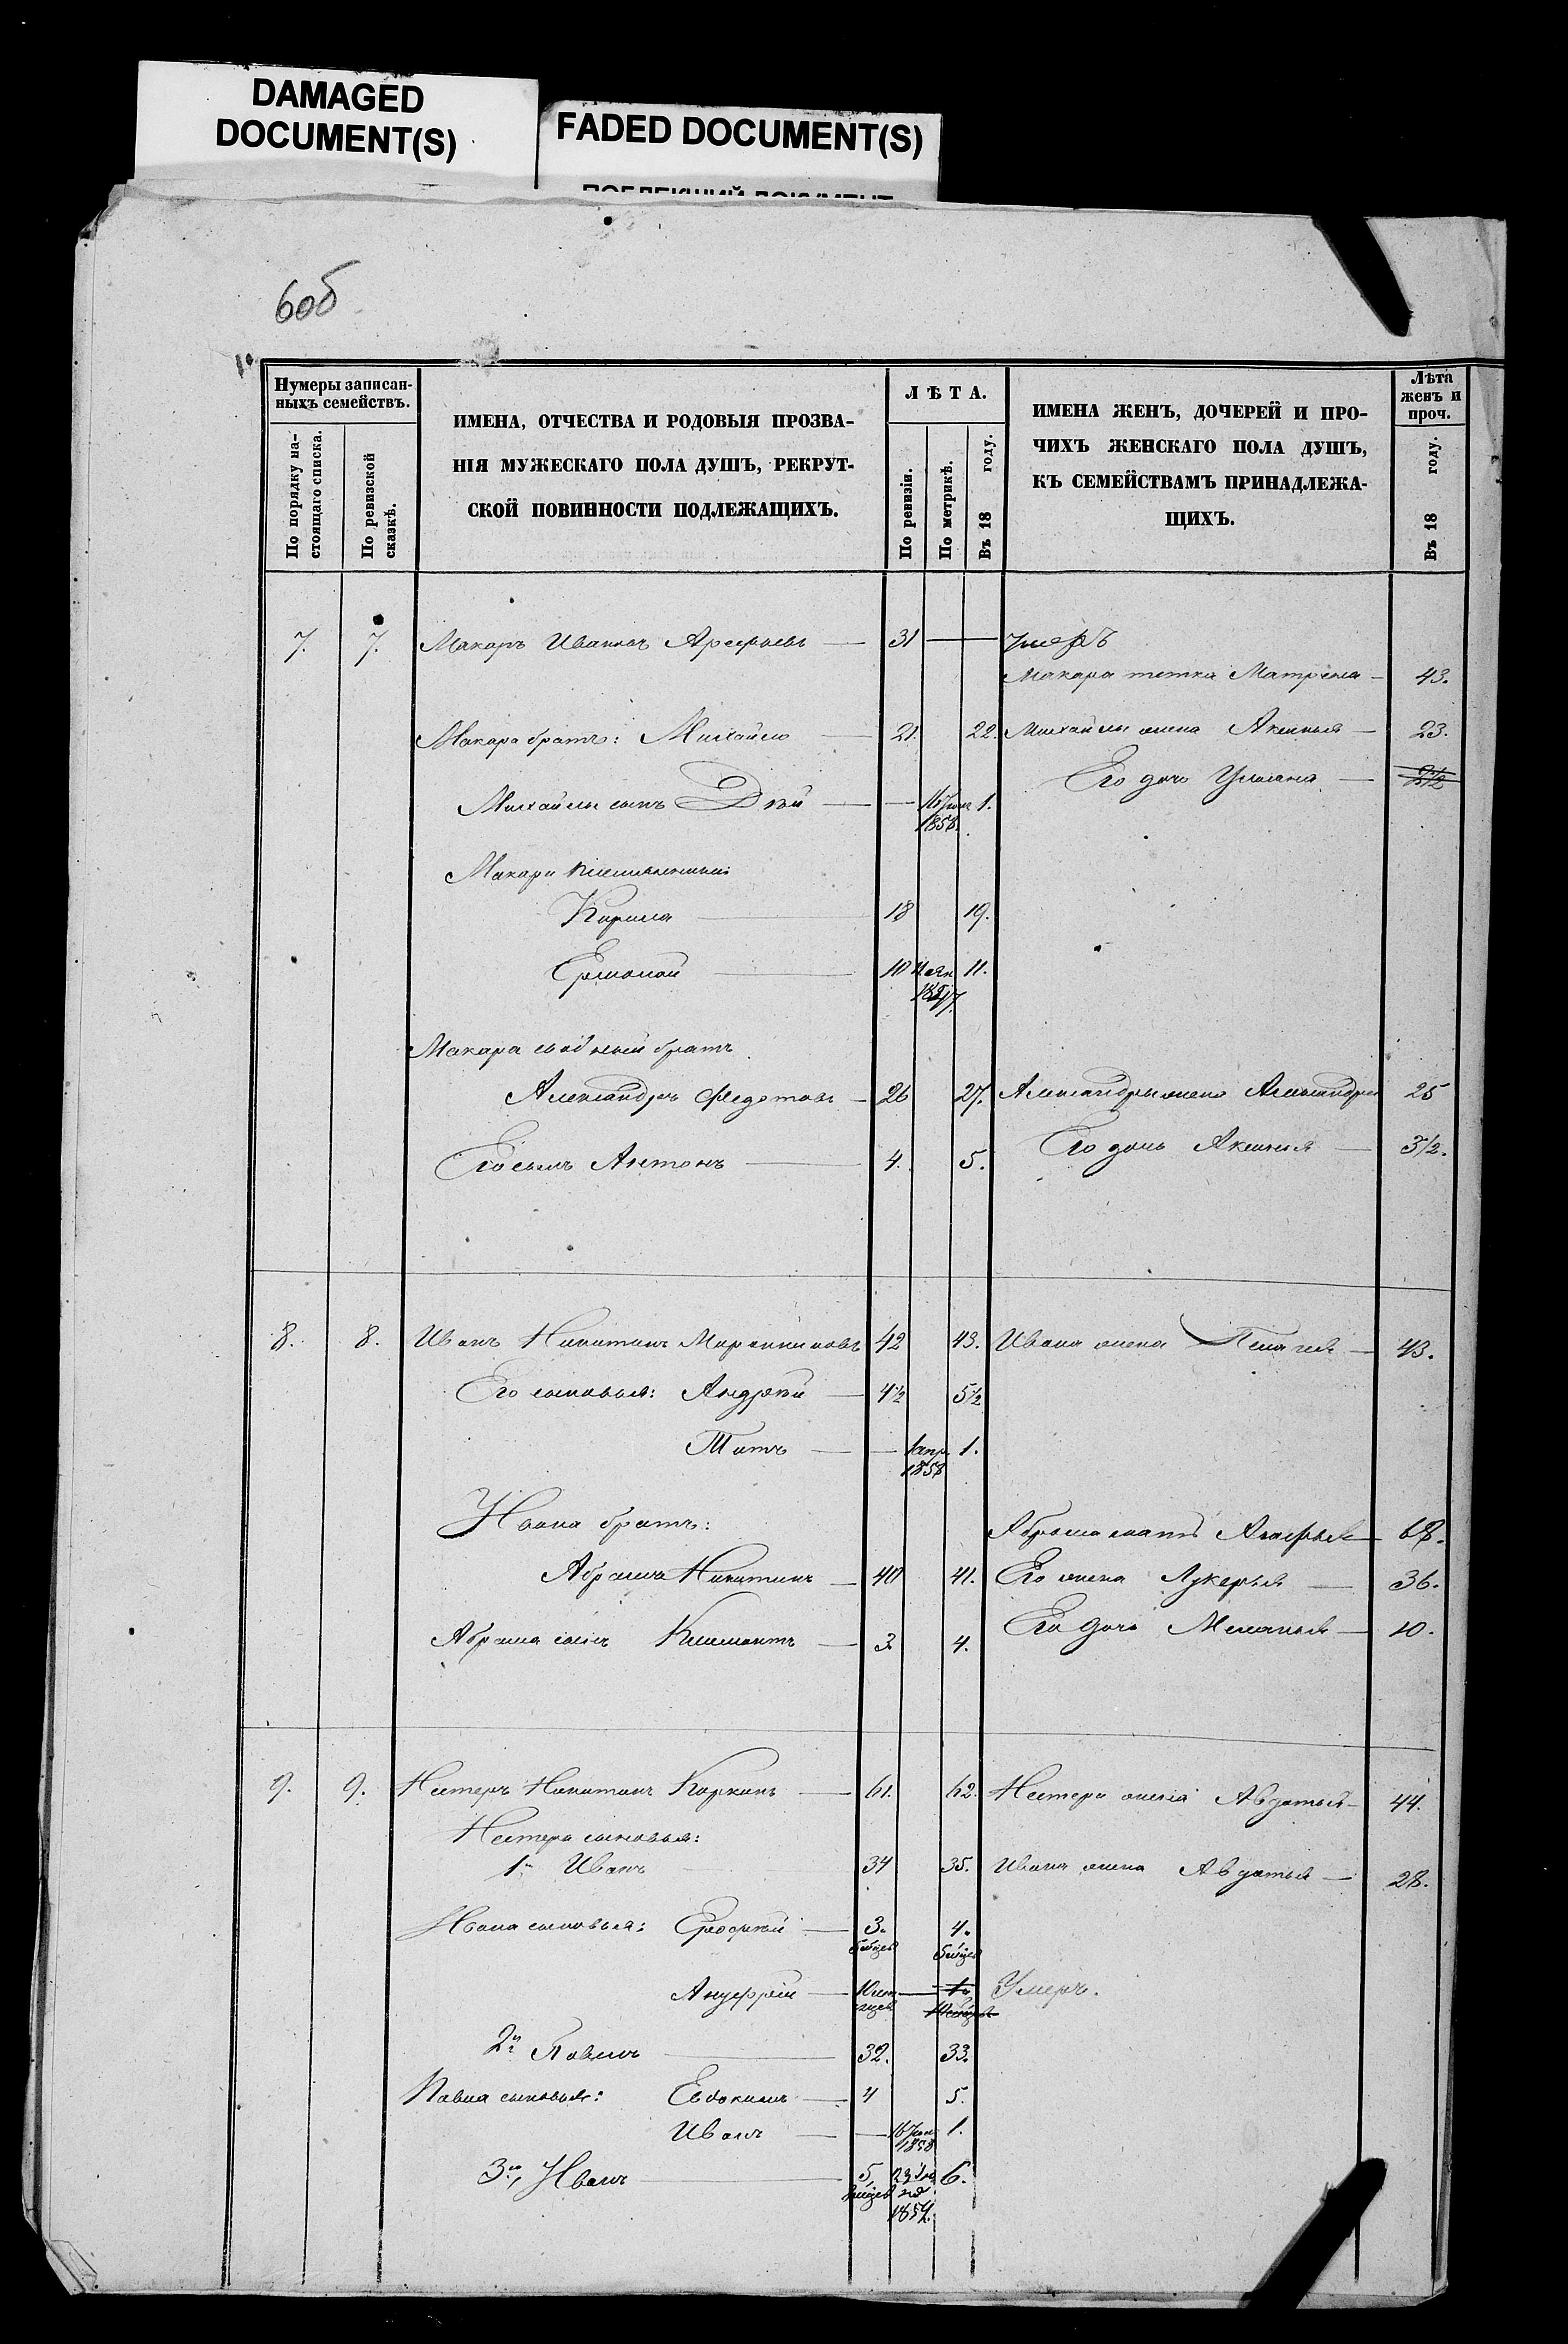 DAMAGED
DOCUMENT(S)
FADED DOCUMENT(S)
6об
Нумеры записан-
ныхъ семействъ.
По порядку на-
стоящаго списка.
По ревизской
сказкѣ.
ИМЕНА, ОТЧЕСТВА И РОДОВЫЯ ПРОЗВА-
НІЯ МУЖЕСКАГО ПОЛА ДУШЪ, РЕКРУТ-
СКОЙ ПОВИННОСТИ ПОДЛЕЖАЩИХЪ.
ЛѢТА.
По ревизіи.
По метрикѣ.
Въ 18 году.
ИМЕНА ЖЕНЪ, ДОЧЕРЕЙ И ПРО-
ЧИХЪ ЖЕНСКАГО ПОЛА ДУШЪ,
КЪ СЕМЕЙСТВАМЪ ПРИНАДЛЕЖА-
ЩИХЪ.
Лѣта
женъ и
проч.
Въ 18 году.
7. 7. Макаръ Ивановъ Арефьевъ — 31 — умеръ
Макара тетка Матрена — 43.
Макара братъ: Михайло — 21. 22. Михайлы жена Аксинья — 23.
Его дочь Ульяна — 2½
Михайлы сынъ — — 1.
1858.
Макара племянники
Кирила — 18 19.
Ермолай — 10 11.
Макара сводный братъ
Александръ Федотовъ — 26 27. Александры жена Александра 25
Его сынъ Антонъ — 4. 5. Его дочь Аксинья — 3½.
8. 8. Иванъ Никитинъ 42 43. Ивана жена Пелагея — 43.
Его сыновья: Андрей — 4½ 5½
Титъ — — 1 апр. 1.
1858
Ивана братъ:
Абрама мать Агафья — 68.
Абрамъ Никитинъ — 40 41. Его жена Лукерья — 36.
Абрама сынъ Климантъ — 3. 4. Его дочь Меланья — 10.
9. 9. Нестеръ Никитинъ Коркинъ — 61. 62. Нестера жена Авдотья — 44.
Нестера сыновья:
1й Иванъ 34 35. Ивана жена Авдотья — 28.
Ивана сыновья: Ерофей — 3. 4.
Ануфрій — — Умеръ.
2й Павелъ — 32. 33.
Павла сыновья: Евдокимъ — 4 5.
Иванъ — — 1.
1858
3й, Иванъ — 5, 6.